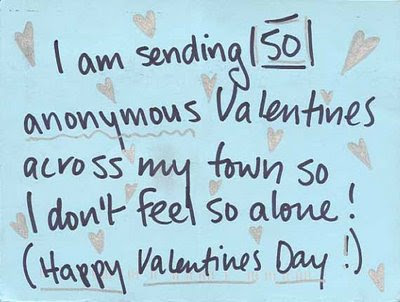 I am sending 50
anonymous Valentines
across my town so
I don't feel so alone!
(Happy Valentines Day!)